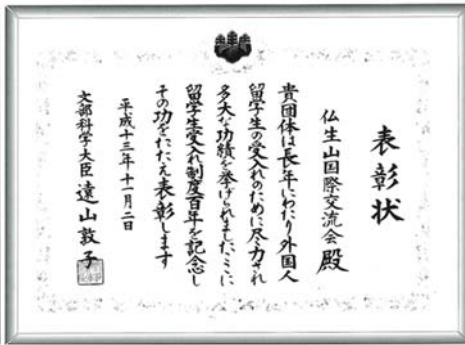 表彰状
仏生山国際交流会 殿
貴団体は長年にわたり外国人
留学生の受入れのために尽力され
多大な功績を挙げられましたここに
留学生受入れ制度百年を記念し
その功をたたえ表彰します
平成十三年十一月二日
文部科学大臣 遠山敦子